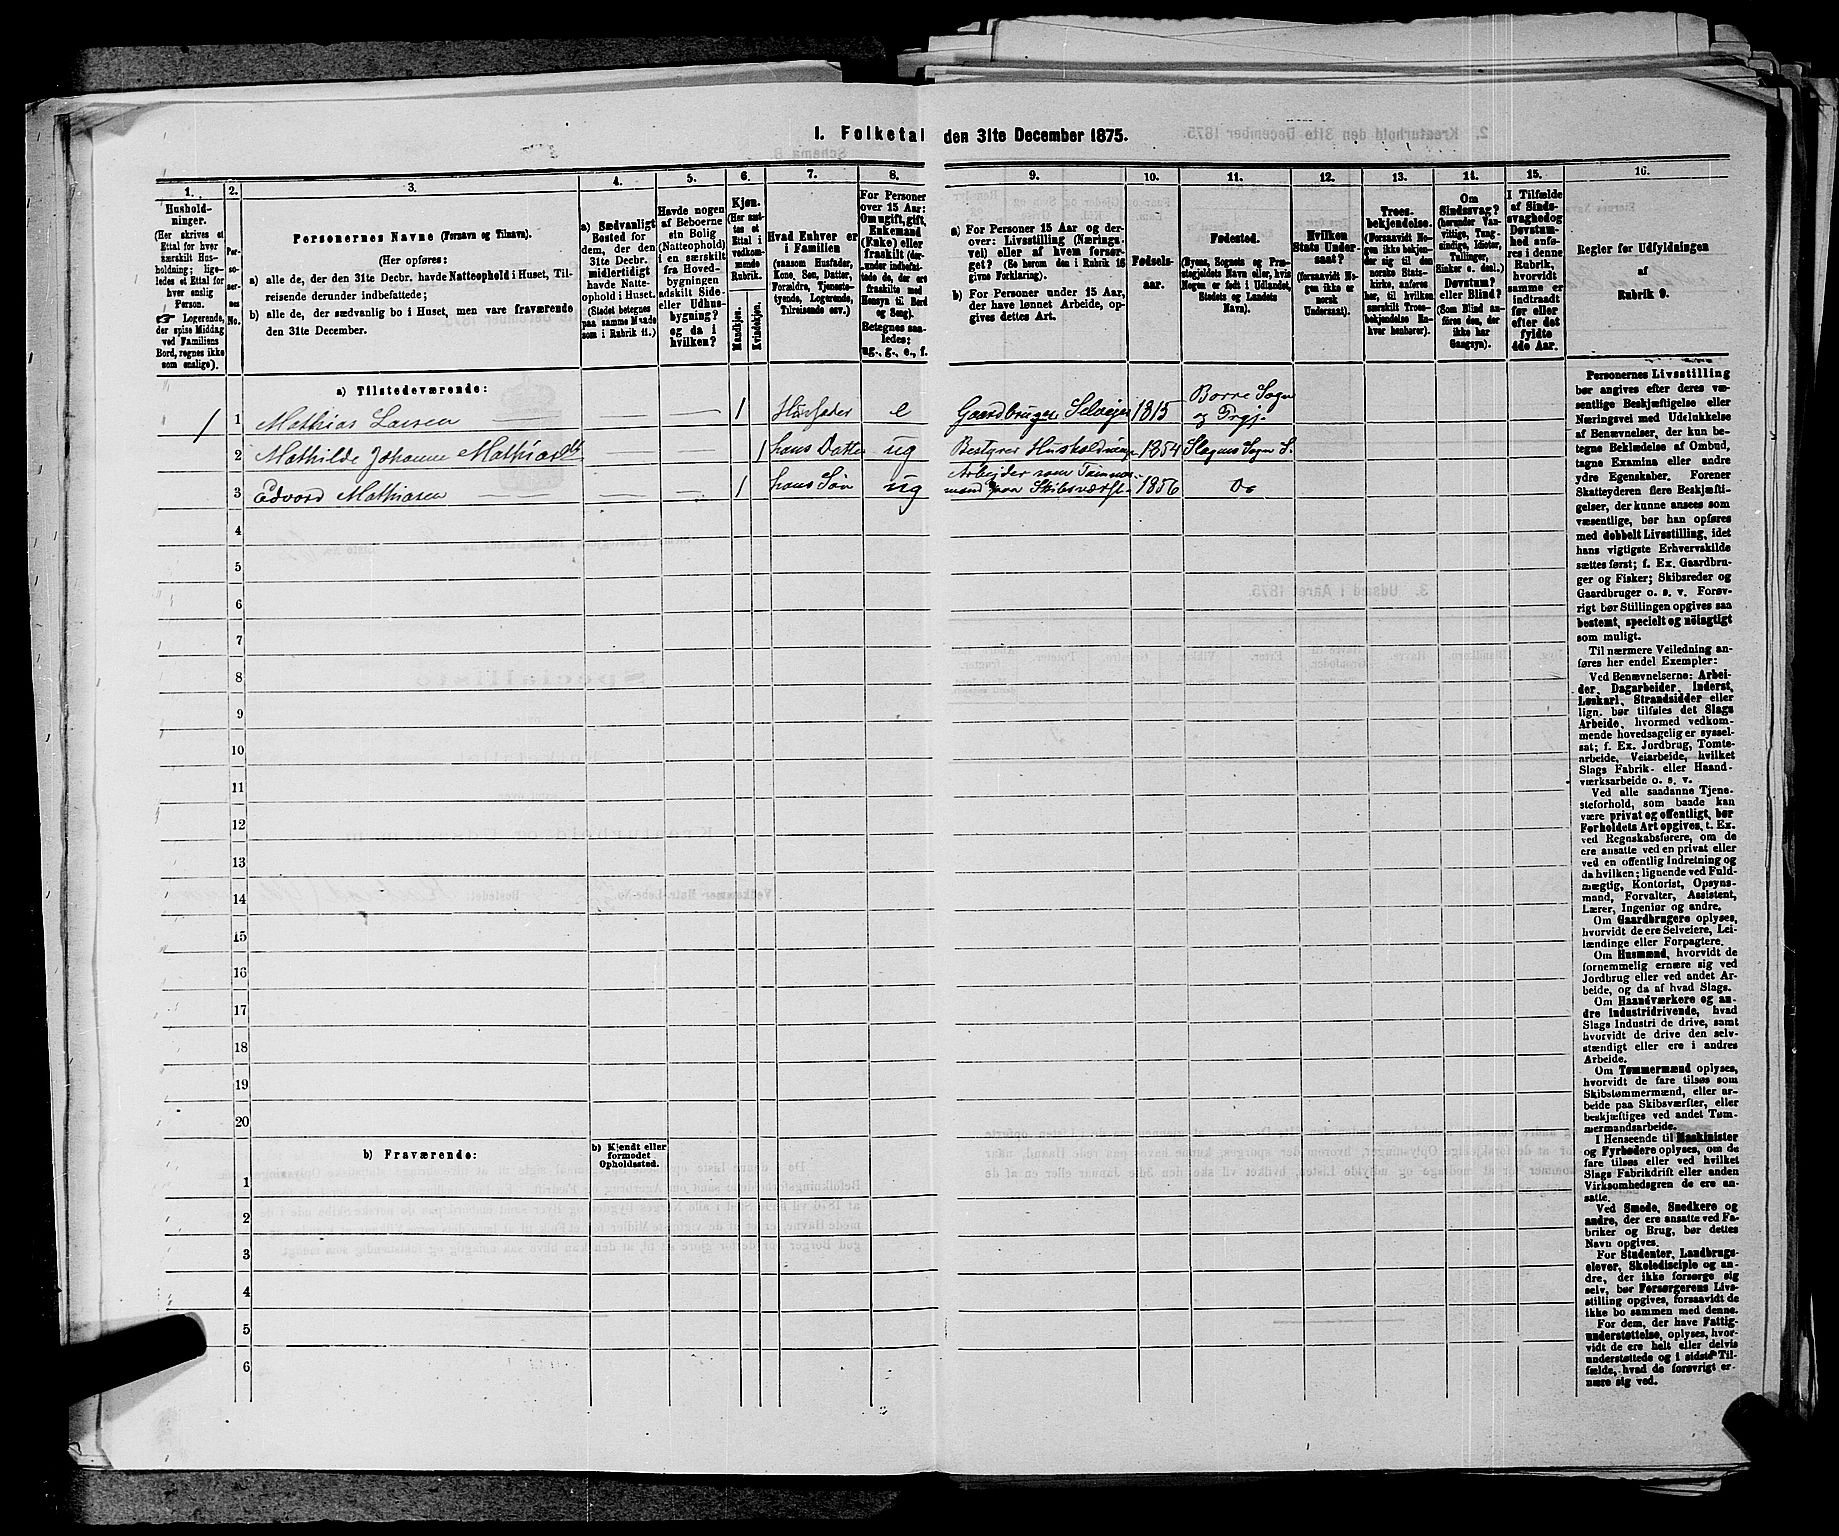 1. Folketal den 31te December 1875.
1.
Hushold-
ninger.
(Her skrives et
Ettal for hver
særskilt Hus-
holdning; lige-
ledes et Ettal for
hver enslig
Person.
☞ Logerende,
der spise Middag
ved Familiens
Bord, regnes ikke
som enslige).
2.
Per-
so-
ner-
nes
No.
3.
Personernes Navne (Fornavn og Tilnavn).
(Her opføres:
a) alle de, der den 31te Decbr. havde Natteophold i Huset, Til-
reisende derunder indbefattede;
b) alle de, der sædvanlig bo i Huset, men vare fraværende
den 31te December.
4.
a) Sædvanligt
Bosted for
dem, der den
31te Decbr.
midlertidigt
havde Natte-
ophold i Huset.
(Stedet betegnes
paa samme Maade
som i Rubrik 11.)
5.
Havde nogen
af Beboerne
sin Bolig
(Natteophold)
i en særskilt
fra Hoved-
bygningen
adskilt Side-
eller Udhus-
bygning?
og da i
hvilken?
6.
Kjøn.
(Her sæt-
tes et
Ettal i
vedkom-
mende
Rubrik.
Mandkjøn.
Kvindekjøn.
7.
Hvad Enhver er
i Familien
(saasom Husfader,
Kone, Søn, Datter,
Forældre, Tjeneste-
tyende, Logerende,
Tilreisende osv.)
8.
For Personer
over 15 Aar:
Om ugift, gift,
Enkemand
(Enke) eller
fraskilt (der-
under indbefat-
tede de, der ere
fraskilte med
Hensyn til Bord
og Seng).
Betegnes saa-
ledes:
ug., g., e., f.
9.
a) For Personer 15 Aar og der-
over: Livsstilling (Nærings-
vei) eller af hvem forsør-
get? (Se herom den i Rubrik 16
givne Forklaring).
b) For Personer under 15 Aar,
der have lønnet Arbeide, op-
gives dettes Art.
10.
Fødsels-
aar.
11.
Fødested.
(Byens, Sognets og Præ-
stegjeldets Navn eller, hvis
Nogen er født i Udlandet,
Stedets og Landets
Navn).
12.
Hvilken
Stats Under-
saat?
(forsaavidt No-
gen ikke er
norsk
Undersaat).
13.
Troes-
bekjendelse.
(Forsaavidt No-
gen ikke bekjen-
der sig til den
norske Stats-
kirke, anføres
her, til hvilken
særskilt Troes-
bekjendelse En-
hver henhører).
14.
Om
Sindssvag?
(herunder Van-
vittige, Tung-
sindige, Idioter,
Tullinger,
Sinker o. desl.)
Døvstum?
eller Blind?
(Som Blind an-
føres den, der
ikke har
Gangsyn).
15.
I Tilfælde
af Sinds-
svaghed og
Døvstum-
hed anfø-
res i denne
Rubrik,
hvorvidt
samme er
indtraadt
før eller
efter det
fyldte
4de Aar.
16.
Regler for Udfyldningen
af
Rubrik 9.
a) Tilstedeværende:
1 1 Mathias Larsen 1 Husfader e Gaardbruger Selveier 1815 Borre Sogn og Prgj.
2 Mathilde Johanne Mathiasdt 1 hans Datter ug Bestyrer Husholdningen 1854 Slagns Sogn S.
3 Edvard Mathiasen 1 hans Søn ug Arbeider som Tømmermand paa Skibsværft 1856 Do
4
5
6
7
8
9
10
11
12
13
14
15
16
17
18
19
20
b) Fraværende:
b) Kjendt eller
formodet
Opholdssted.
1
2
3
4
5
6
Personernes Livsstilling
bør angives efter deres væ-
sentlige Beskjæftigelse eller
Næringsvei med Udelukkelse
af Benævnelser, der kun be-
tegne Beklædelse af Ombud,
tagne Examina eller andre
ydre Egenskaber. Forener
Skatteyderen flere Beskjæfti-
gelser, der kunne ansees som
væsentlige, bør han opføres
med dobbelt Livsstilling, idet
hans vigtigste Erhvervskilde
sættes først; f. Ex. Gaardbru-
ger og Fisker; Skibsreder og
Gaardbruger o. s. v. Forøv-
rigt bør Stillingen opgives saa
bestemt, specielt og nöiagtigt
som muligt.
Til nærmere Veiledning an-
føres her endel Exempler:
Ved Benævnelserne: Arbei-
der, Dagarbeider, Inderst,
Løskarl, Strandsidder eller
lign. bør tilføies det Slags
Arbeide, hvormed vedkom-
mende hovedsagelig er syssel-
sat; f. Ex. Jordbrug, Tomte-
arbeide, Veiarbeide, hvilket
Slags Fabrik- eller Haand-
værksarbeide o. s. v.
Ved alle saadanne Tjene-
steforhold, som baade kan
være privat og offentligt, bør
Forholdets Art opgives, t. Ex.
ved Regnskabsførere, om de
ere ansatte ved en privat eller
ved en offentlig Indretning og
da hvilken; lignende ved Fuld-
mægtig, Kontorist, Opsyns-
mand, Forvalter, Assistent,
Lærer, Ingeniør og andre.
Om Gaardbrugere oplyses,
hvorvidt de ere Selveiere, Lei-
lændinge eller Forpagtere.
Om Husmænd, hvorvidt de
fornemmelig ernære sig ved
Jordbrug eller ved andet Ar-
beide, og da af hvad Slags.
Om Haandværkere og an-
dre Industridrivende, hvad
Slags Industri de drive, samt
hvorvidt de drive den selv-
stændigt eller ere i andres
Arbeide.
Om Tømmermænd oplyses,
hvorvidt de fare tilsøs som
Skibstømmermænd, eller ar-
beide paa Skibsværfter, eller
beskjæftiges ved andet Tøm-
mermandsarbeide.
I Henseende til Maskinister
og Fyrbødere oplyses, om de
fare tilsøs eller ved hvilket
Slags Fabrikdrift eller anden
Virksomhedsgren de ere an-
satte.
Ved Smede, Snedkere og
andre, der ere ansatte ved Fa-
briker og Brug, bør dettes
Navn opgives.
For Studenter, Landbrugs-
elever, Skoledisciple og an-
dre, der ikke forsørge sig
selv, bør Forsørgerens Livs-
stilling opgives, forsaavidt de
ikke bo sammen med denne.
For dem, der have Fattig-
understøttelse, oplyses, hvor-
vidt de ere helt eller delvis
understøttede og i sidste Til-
fælde, hvad de forøvrigt er-
nære sig ved.